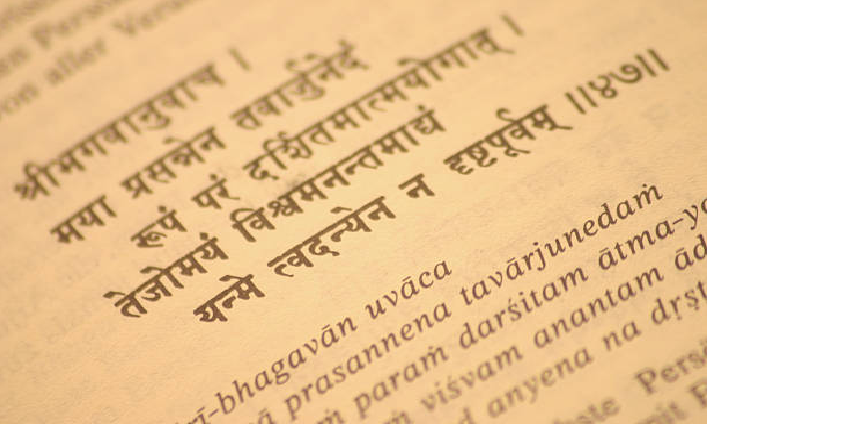 aller
श्रीभगवानुवाच ।
मया प्रसन्नेन तवार्जुनेदं
रूपं परं दर्शितमात्मयोगात् ।
तेजोमयं विश्वमनन्तमाद्यं
यन्मे त्वदन्येन न दृष्टपूर्वम् ॥४७॥
rī-bhagavān uvāca
ā prasannena tavārjunedaṁ
ṁ paraṁ darśitam ātma-yo
ṁ viśvam anantam ād
d anyena na dṛṣṭ
ste Pers
mit